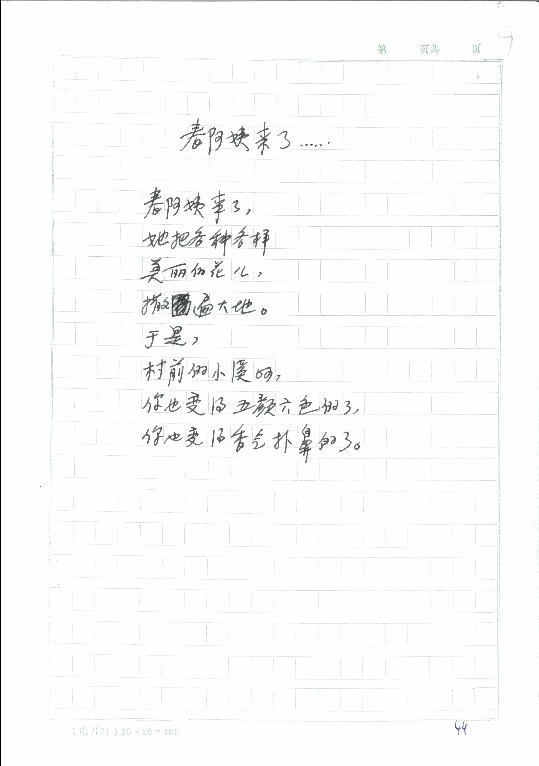 第 页共 页
春阿姨来了……
春阿姨来了，
她把各种各样
美丽的花儿，
撒遍大地。
于是，
村前的小溪啊，
你也变得五颜六色的了，
你也变得香气扑鼻的了。
20×20=400
44